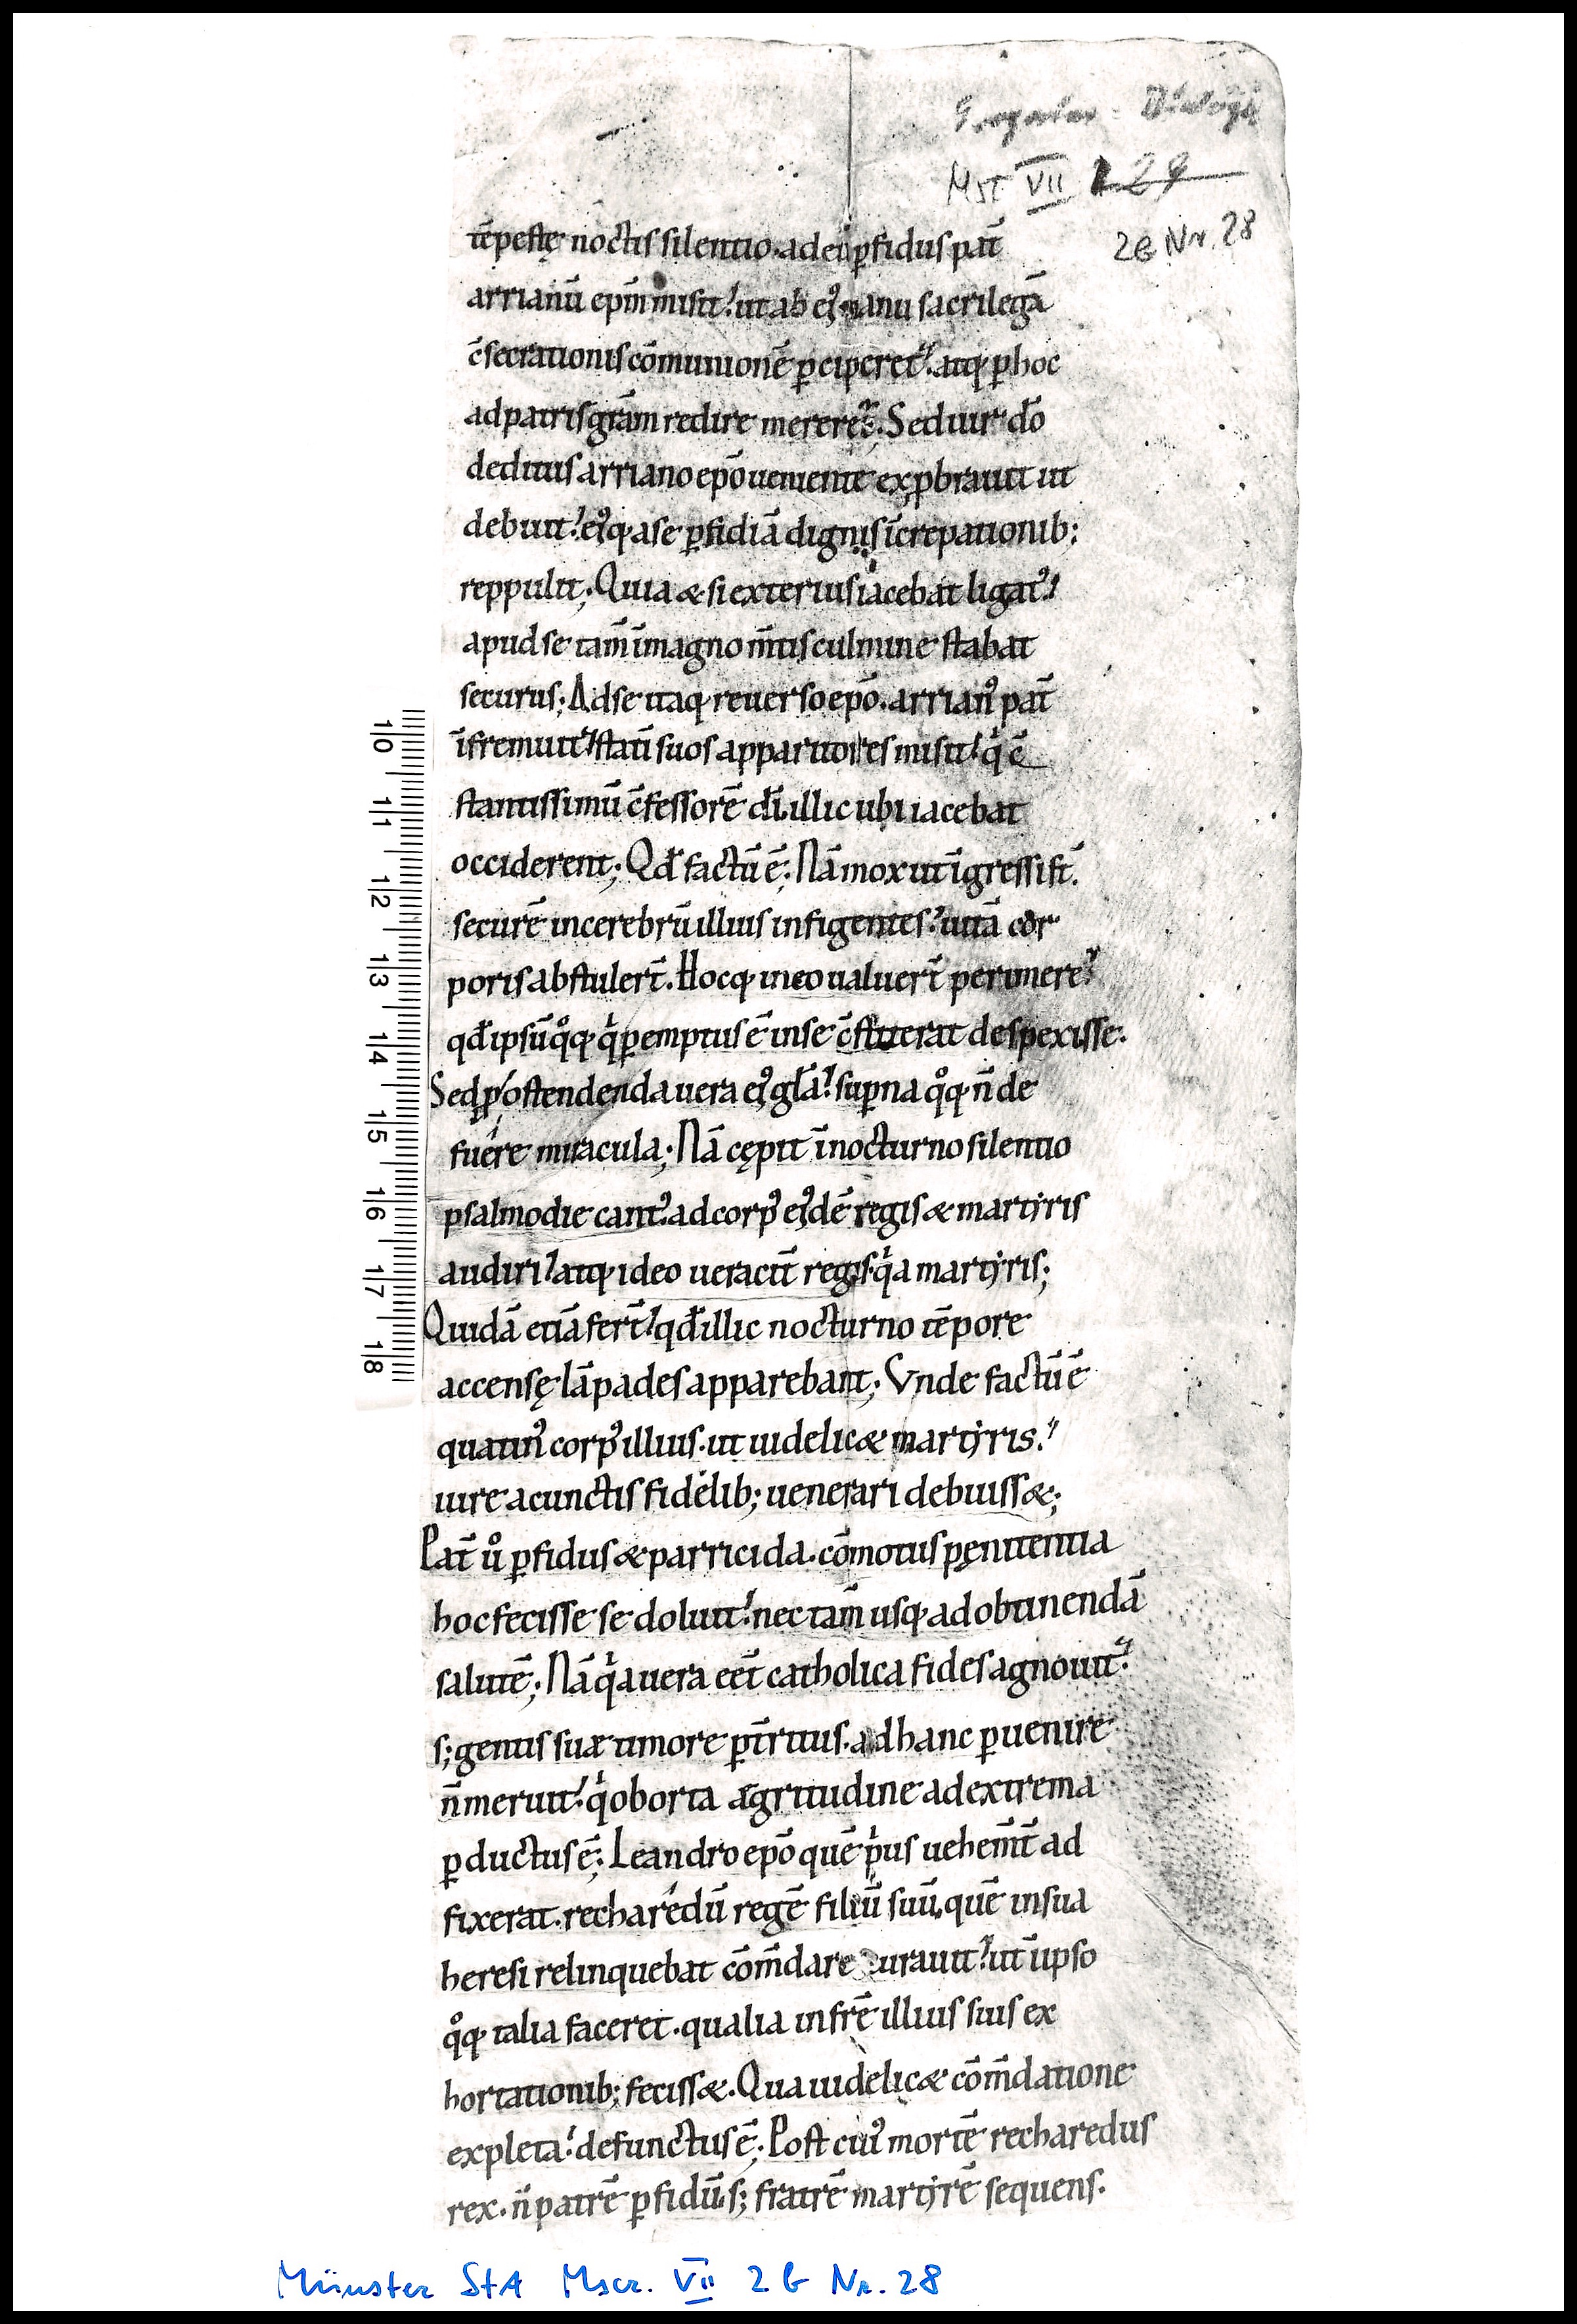 Gregorius - Dialogi
Msc VII 1 29
2e Nr. 28
tēpestę noctis silentio. ad eū ꝑfidus pat̄
arrianū ep̄m misit! ut ab ei᷒ manu sacrilegā
c̄secrationis cōmunionē ꝑciperet!. atq; ꝑ hoc
ad patris gr̄am redire mereret᷒; Sed uir dō
deditus arriano ep̄o ueniente exꝓbrauit ut
debuit! ei᷒q; a se ꝑfidiā dignis īcrepationib;
reppulit; Quia & si exterius iacebat ligat᷒!
apud se tam̄ ī magno m̄tis culmine stabat
securus; Ad se itaq; reuerso ep̄o. arrian᷒ pat̄
īfremuit! statī suos apparitores misit! qͥ c̄
stantissimū c̄fessorē dī illic ubi iacebat
occiderent; Qđ factū ē; Nā mox ut īgressi st̄.
securē in cerebrū illius infigentes! uitā cor
poris abstuler̄t. Hocq; in eo ualuer̄t perimere!
qđ ipsū qͦq; qͥ ꝑemptus ē in se c̄stiterat despexisse.
Sed ꝓ ostendenda uera ei᷒ gl̄a! suꝑna qͦq; n̄ de
fuere miracula; Nā cępit ī nocturno silentio
psalmodie cant᷒ ad corp᷒ ei᷒dē regis & martyris
audiri! atq; ideo ueracit̄ regis. qͥa martyris;
Quidā etiā fer̄t! qđ illic nocturno tēpore
accensę lāpades apparebant; Vnde factū ē
quatin᷒ corp᷒ illius. ut uidelic& martyris!
iure a cunctis fidelib; uenerari debuiss&;
Pat̄ uͦ ꝑfidus & parricida. cōmotus pęnitentia
hoc fecisse se doluit! nec tam̄ usq; ad obtinendā
salutē; Nā qͥa uera eēt catholica fides agnouit!
s; gentis suæ timore ꝑt̄ritus. ad hanc ꝑuenire
n̄ meruit! qͥ oborta ægritudine ad extrema
ꝑductus ē; Leandro ep̄o quē pͥus uehem̄t̄ ad
fixerat. recharedū regē filiū suū, quē in sua
heresi relinquebat cōm̄dare curauit! ut ī ipso
qͦq; talia faceret. qualia in fr̄e illius suis ex
hortationib; feciss&. Qua uidelic& cōm̄datione
expleta! defunctus ē; Post cui᷒ mortē recharedus
rex. n̄ patrē ꝑfidū, s; fratrē martyrē sequens.
10 11 12 13 14 15 16 17 18
Münster StA Mscr. VII 2b Nr. 28